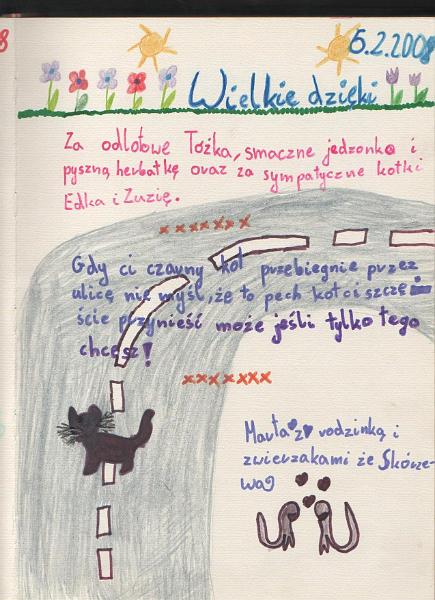 8
5.2.2008
Wielkie dzięki
Za odlotowe Łóżka, smaczne jedzonko i
pyszną herbatkę oraz za sympatyczne kotki
Edka i Zuzię.
xxxxxxx
Gdy ci czarny kot przebiegnie przez
ulicę nie myśl, że to pech kot ci szczę-
ście przynieść może jeśli tylko tego
chcesz!
xxxxxxx
Marta z rodzinką i
zwierzakami ze Skórze-
wa